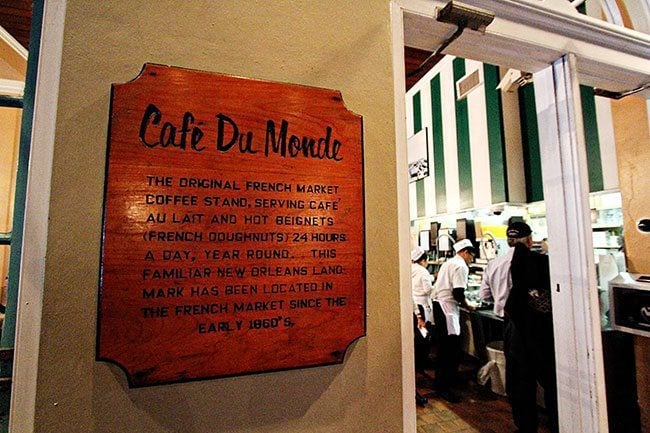 Café Du Monde
THE ORIGINAL FRENCH MARKET
COFFEE STAND, SERVING CAFE'
AU LAIT AND HOT BEIGNETS
(FRENCH DOUGHNUTS) 24 HOURS
A DAY, YEAR ROUND... THIS
FAMILIAR NEW ORLEANS LAND-
MARK HAS BEEN LOCATED IN
THE FRENCH MARKET SINCE THE
EARLY 1860'S.